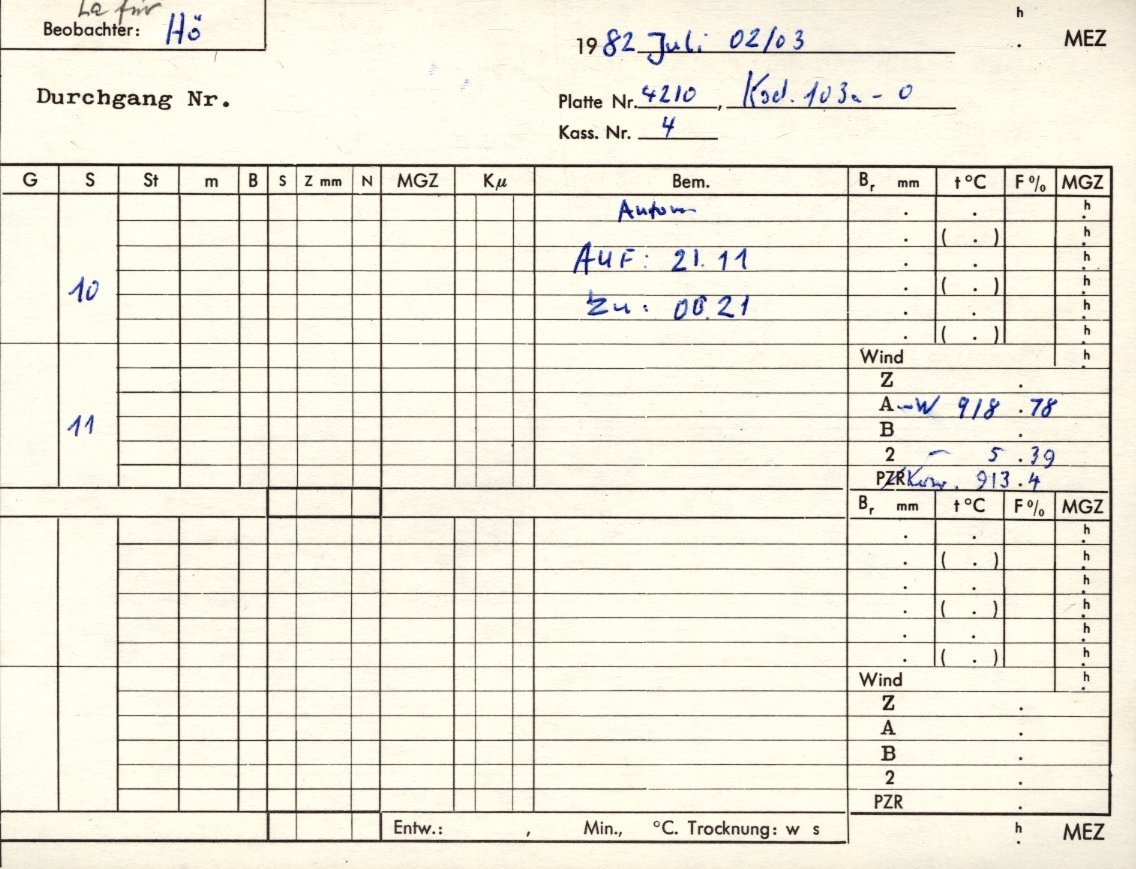 La für
Beobachter: Hö
1982 Juli 02/03
h
. MEZ
Durchgang Nr.
Platte Nr. 4210, Kod. 103a-O
Kass. Nr. 4
G S St m B S Z mm N MGZ Kμ Bem. Br mm t °C F % MGZ
Autom
. . h
. ( . ) h
10 AUF: 21.11
. . h
. ( . ) h
Zu: 00.21
. . h
. ( . ) h
Wind h
Z .
11 A -W 918 .78
B .
2 5 .39
PZR 913.4
Br mm t °C F % MGZ
. . h
. ( . ) h
. . h
. ( . ) h
. . h
. ( . ) h
Wind h
Z .
A .
B .
2 .
PZR .
Entw.: , Min., °C. Trocknung: w s
h
. MEZ